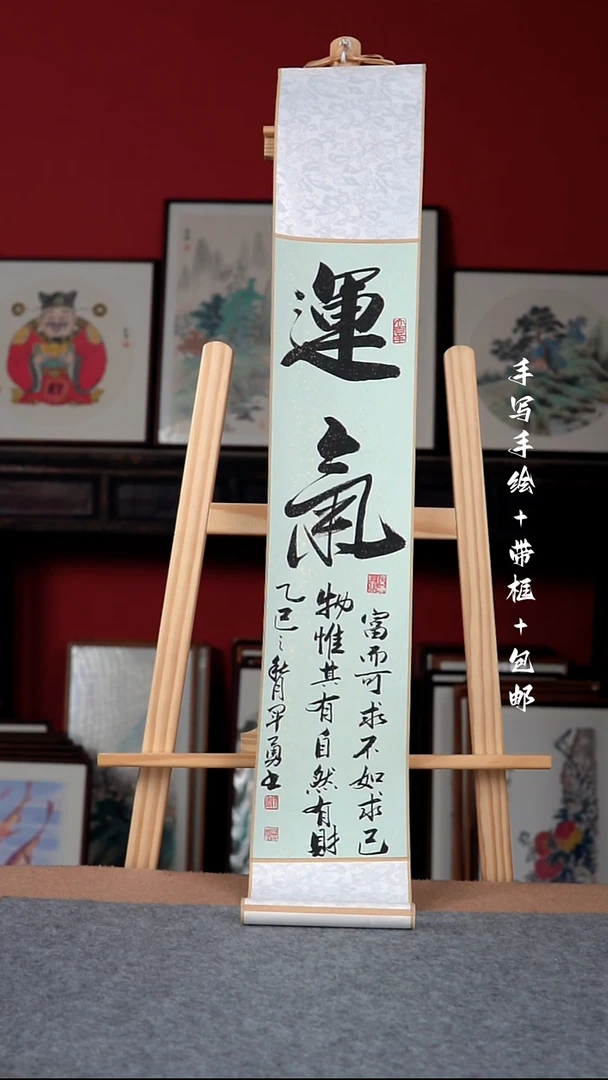 運氣
富而可求不如求己
物惟其有自然有財
乙巳之秋月军勇书
手写手绘+带框+包邮